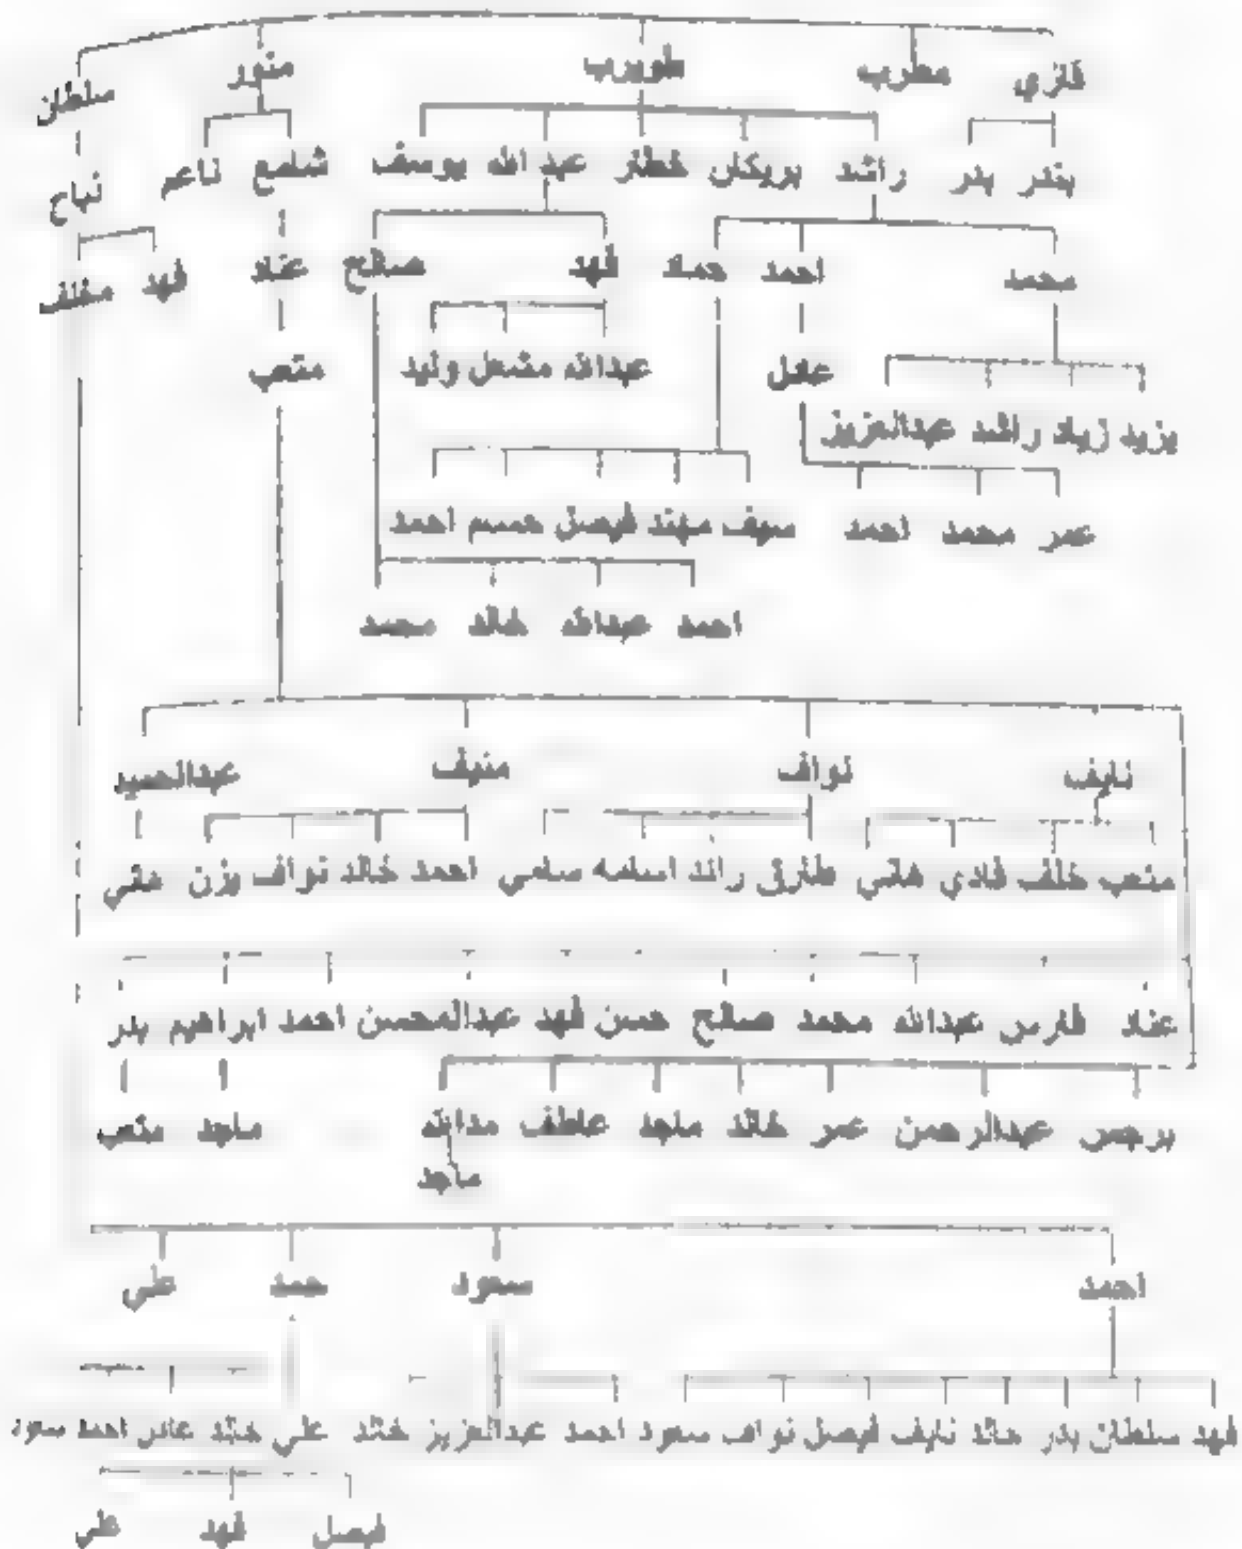 قازي مطرب طويرب منور سلطان
بندر بدر راشد بريكان خطار عبد الله يوسف شامع ناعم نباح
محمد احمد حماد فهد صالح عناد فهد مخلف
عادل عبدالله مشعل وليد متعب
يزيد زياد راشد عبدالعزيز
عمر محمد احمد سيف مهند فيصل احمد
احمد عبدالله خالد محمد
نايف نواف منيف
متعب خلف فادي هاني طارق رائد اسامه سامي احمد خالد نواف يزن هاني
عناد فارس عبدالله محمد صالح حسن فهد عبدالمحسن احمد ابراهيم بدر
برجس عبدالرحمن عمر خالد ماجد عاطف مدالله ماجد متعب
ماجد
احمد سعود حمد علي
فهد سلطان بدر خالد نايف فيصل نواف سعود احمد عبدالعزيز خالد علي خالد احمد سعود
فيصل فهد علي